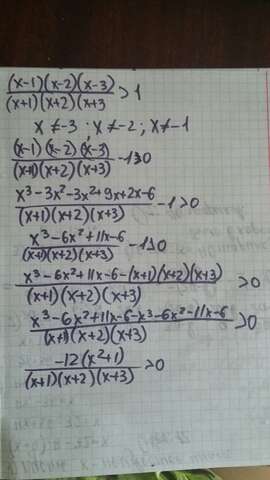 (x-1)(x-2)(x-3)/(x+1)(x+2)(x+3 >1
x≠-3 ; x≠-2 ; x≠-1
(x-1)(x-2)(x-3)/(x+1)(x+2)(x+3) -1>0
x³-3x²-3x²+9x+2x-6/(x+1)(x+2)(x+3) -1>0
x³-6x²+11x-6/(x+1)(x+2)(x+3) -1>0
x³-6x²+11x-6-(x+1)(x+2)(x+3)/(x+1)(x+2)(x+3) >0
x³-6x²+11x-6-x³-6x²-11x-6/(x+1)(x+2)(x+3) >0
-12(x²+1)/(x+1)(x+2)(x+3) >0